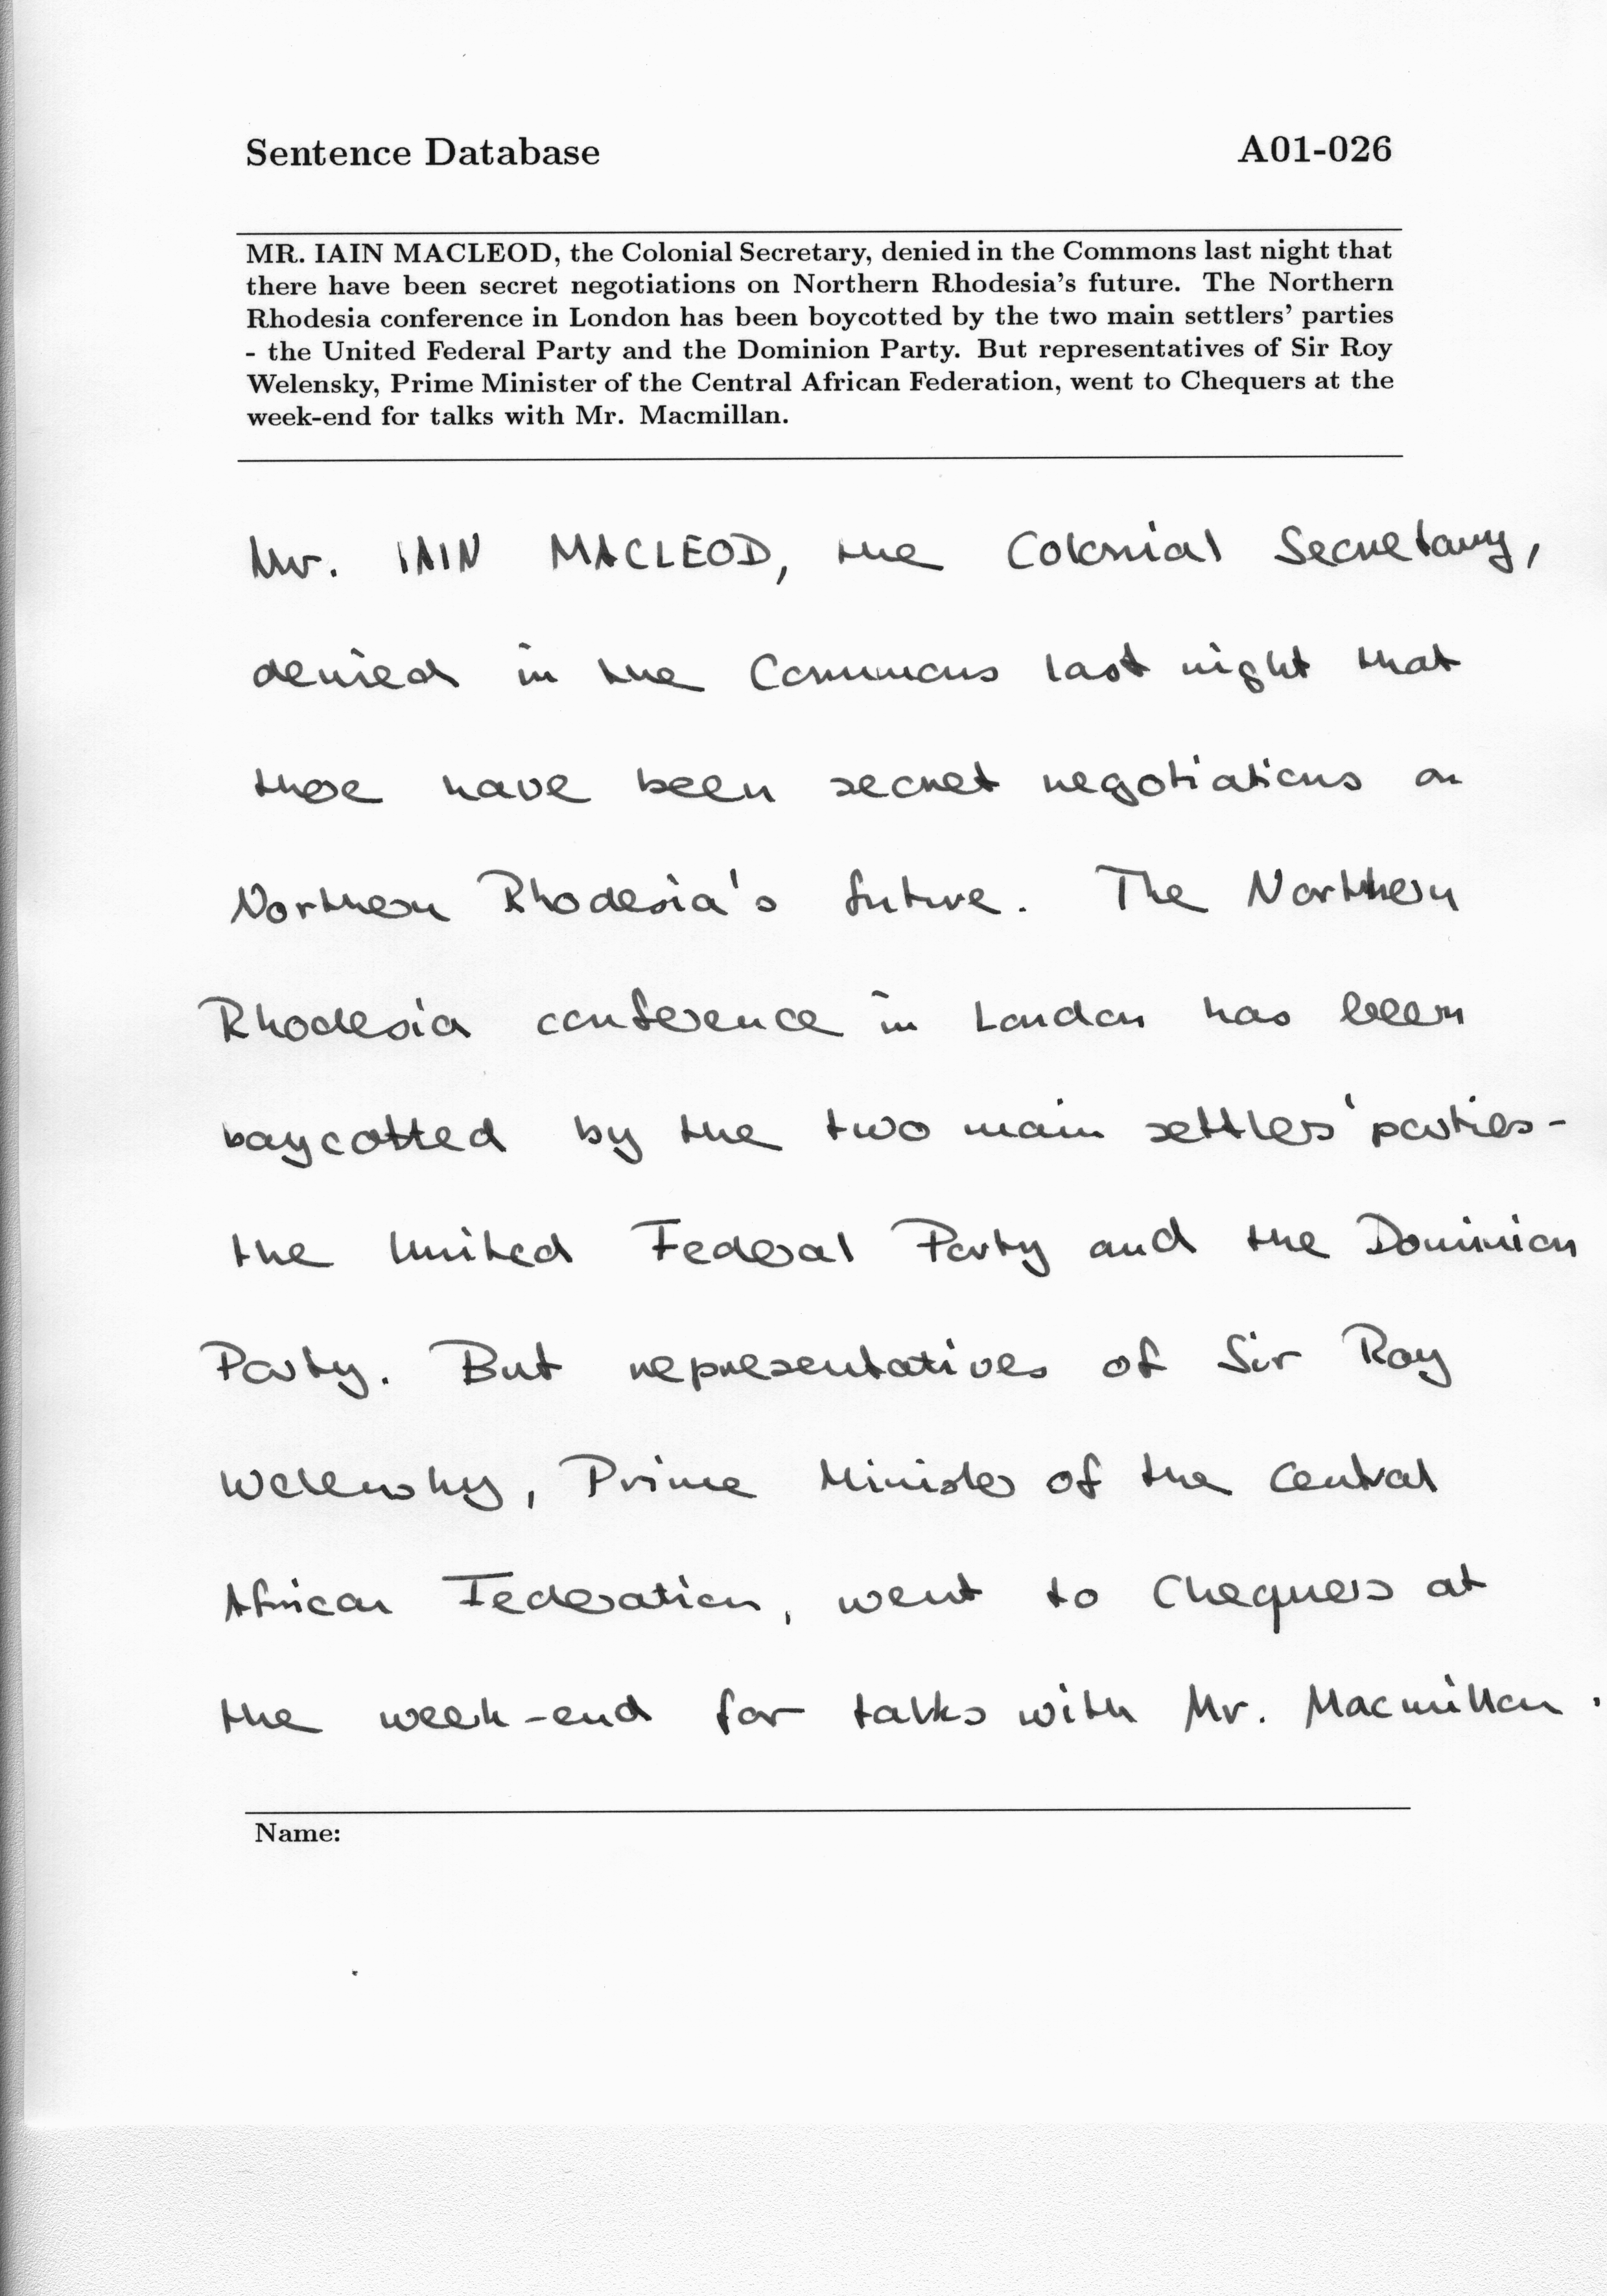 Sentence Database A01-026
MR. IAIN MACLEOD, the Colonial Secretary, denied in the Commons last night that
there have been secret negotiations on Northern Rhodesia's future. The Northern
Rhodesia conference in London has been boycotted by the two main settlers' parties
- the United Federal Party and the Dominion Party. But representatives of Sir Roy
Welensky, Prime Minister of the Central African Federation, went to Chequers at the
week-end for talks with Mr. Macmillan.
Mr. IAIN MACLEOD, the Colonial Secretary,
denied in the Commons last night that
there have been secret negotiations on
Northern Rhodesia's future. The Northern
Rhodesia conference in London has been
boycotted by the two main settlers' parties-
the United Federal Party and the Dominion
Party. But representatives of Sir Roy
Welensky, Prime Minister of the Central
African Federation, went to Chequers at
the week-end for talks with Mr. Macmillan.
Name: